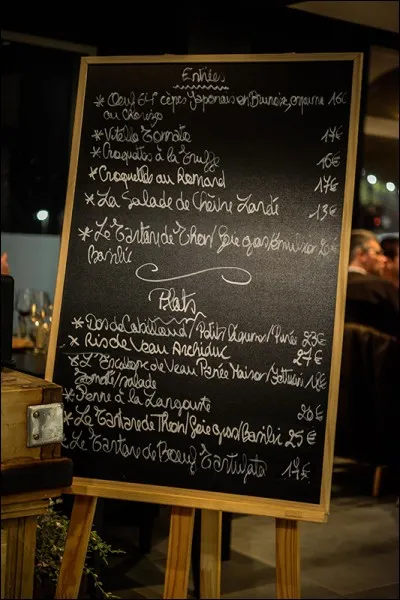 Entrées
* Oeuf 64° cèpes Japonais en Brunoise, espuma 16€
au Chorizo
* Vitello Tomate 17€
* Croquettes à la Truffe 16€
* Croquettes au Romard 17€
* La Salade de Chèvre Lardé 13€
* Le Tartare de Thon/Foie gras/émulsion 20€
Basilic
Plats
* Dos de Cabillaud/Petits légumes/Purée 23€
* Ris de Veau Archiduc 27€
* L'Escalope de Veau Panée Maison/ 18€
Tomate/salade
* Penne à la Langouste 20€
* Le Tartare de Thon/Foie gras/Basilic 25€
* Le Tartare de Boeuf Tartufata 17€